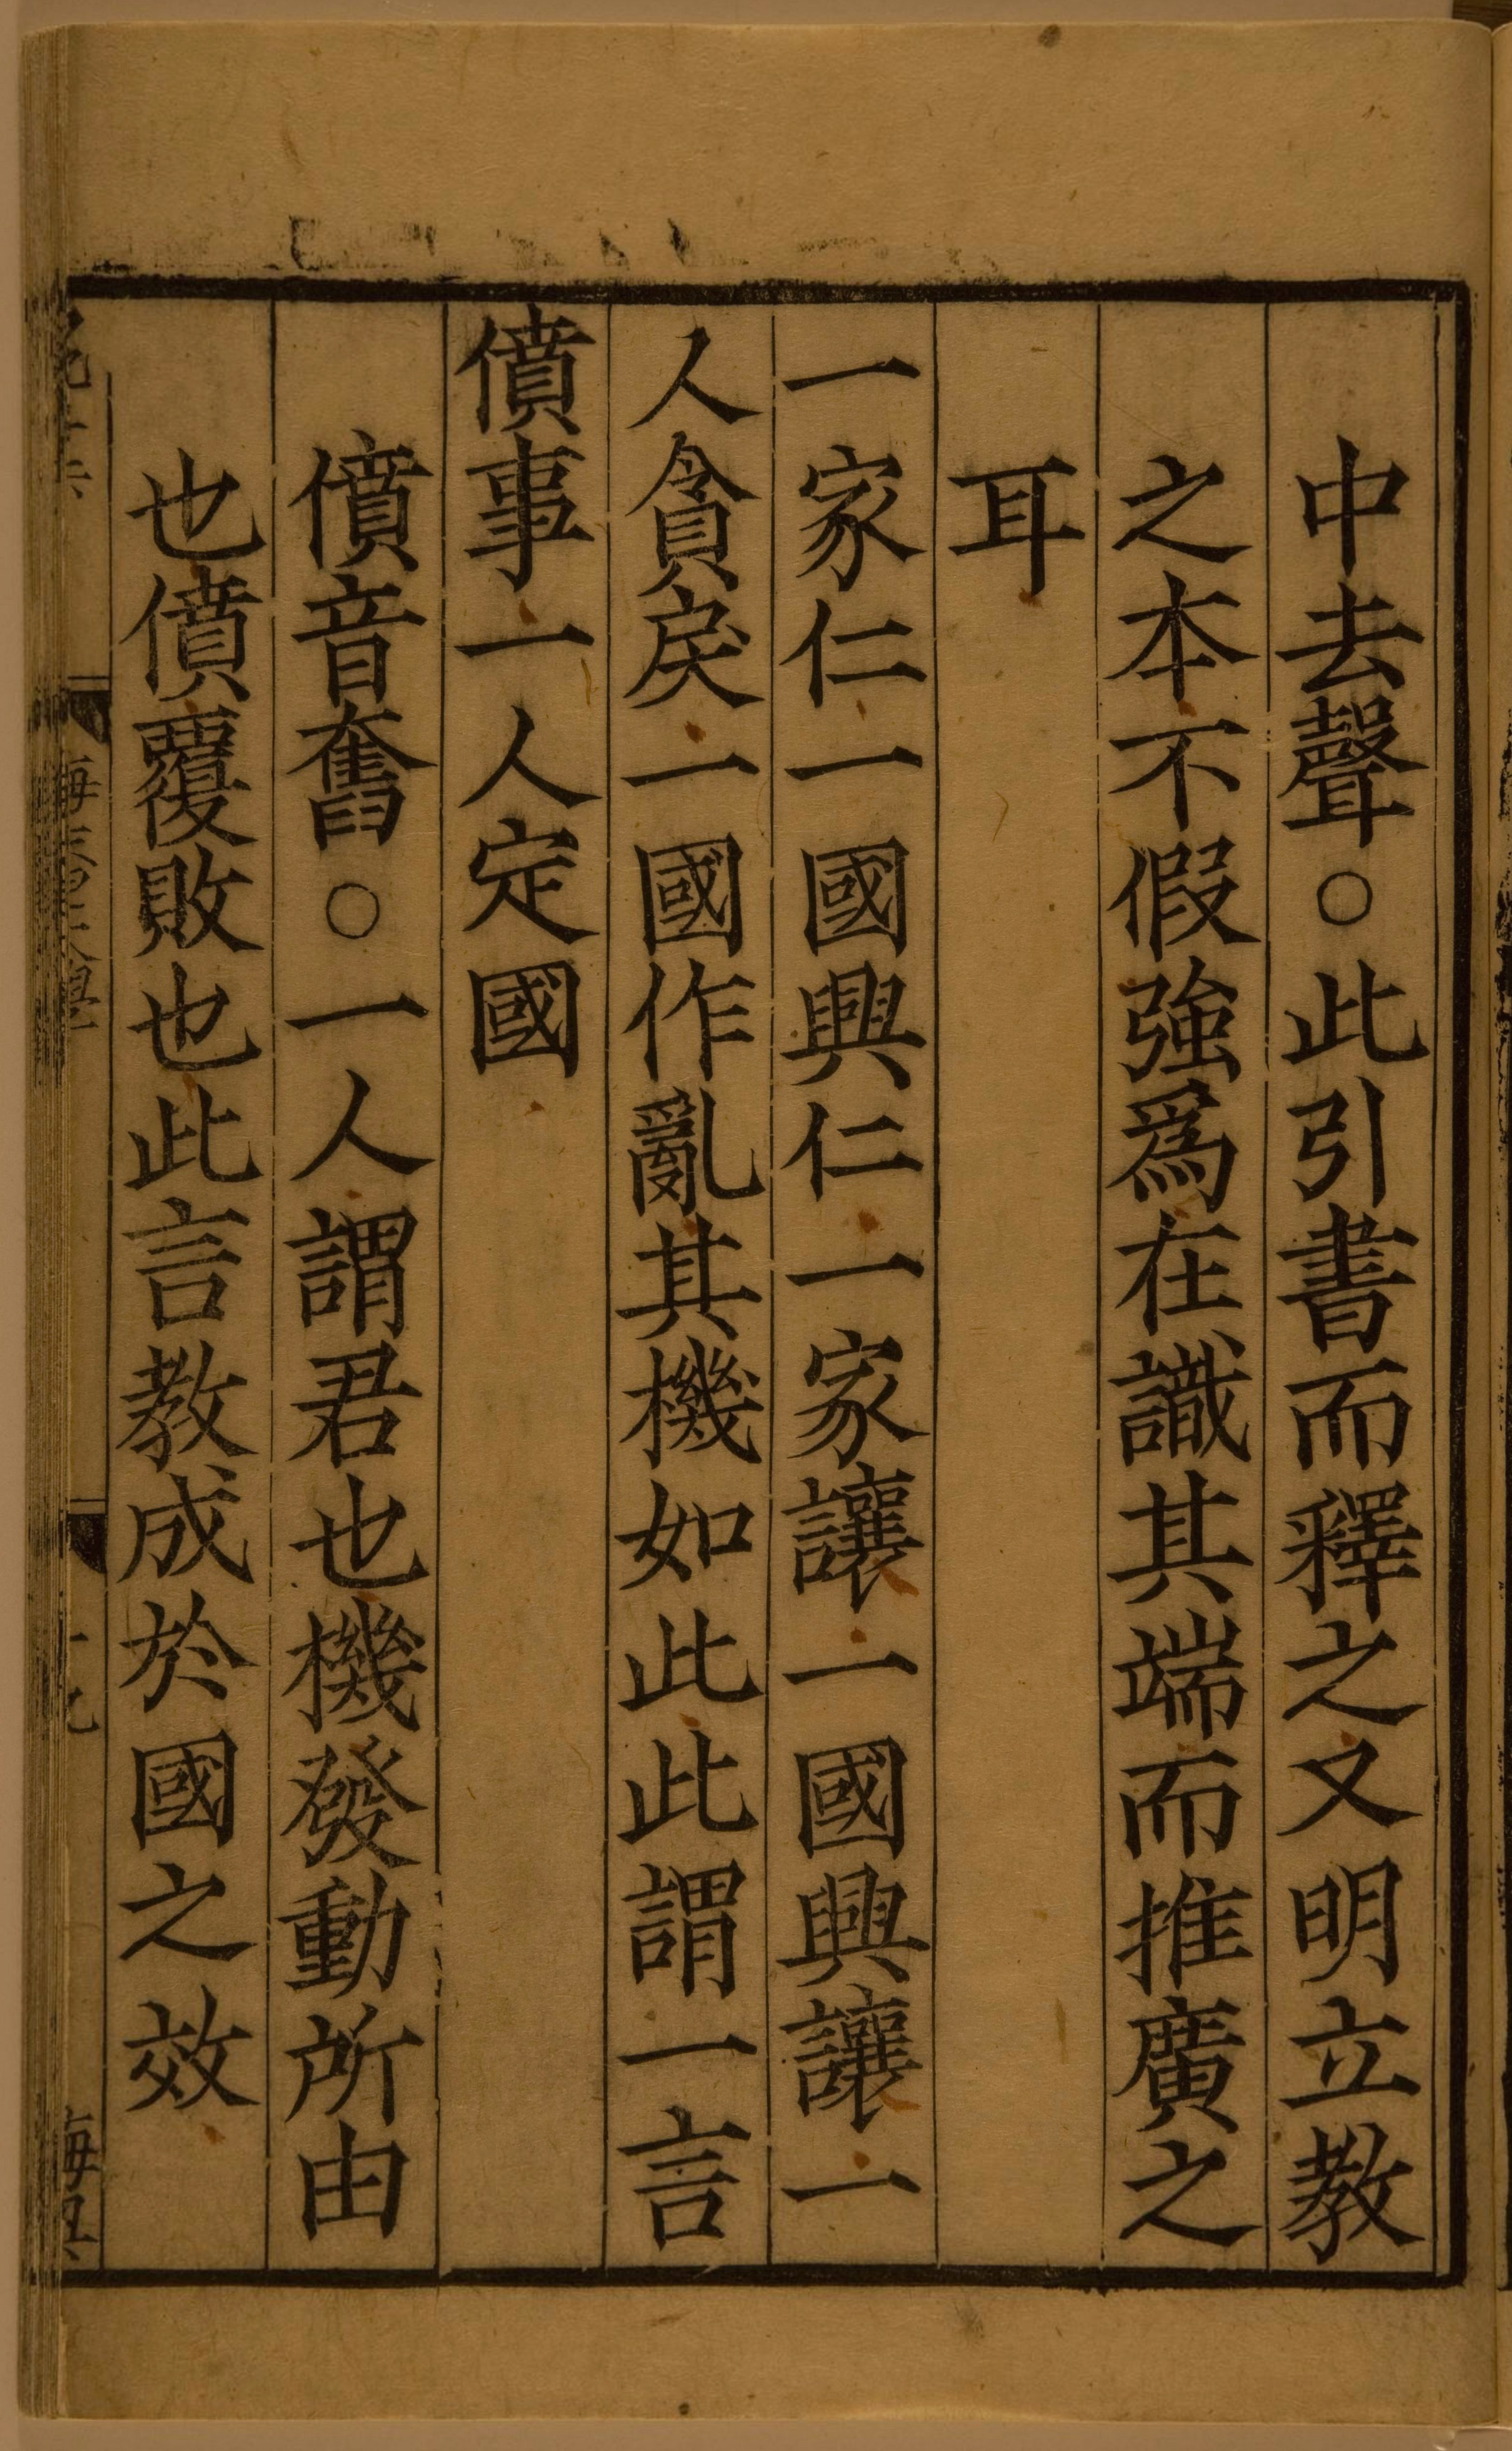 中去聲○此引書而釋之又明立教
之本不假強爲在識其端而推廣之
耳
一家仁一國興仁一家讓一國興讓一
人貪戾一國作亂其機如此此謂一言
僨事一人定國
僨音奮○一人謂君也機發動所由
也僨覆敗也此言教成於國之效